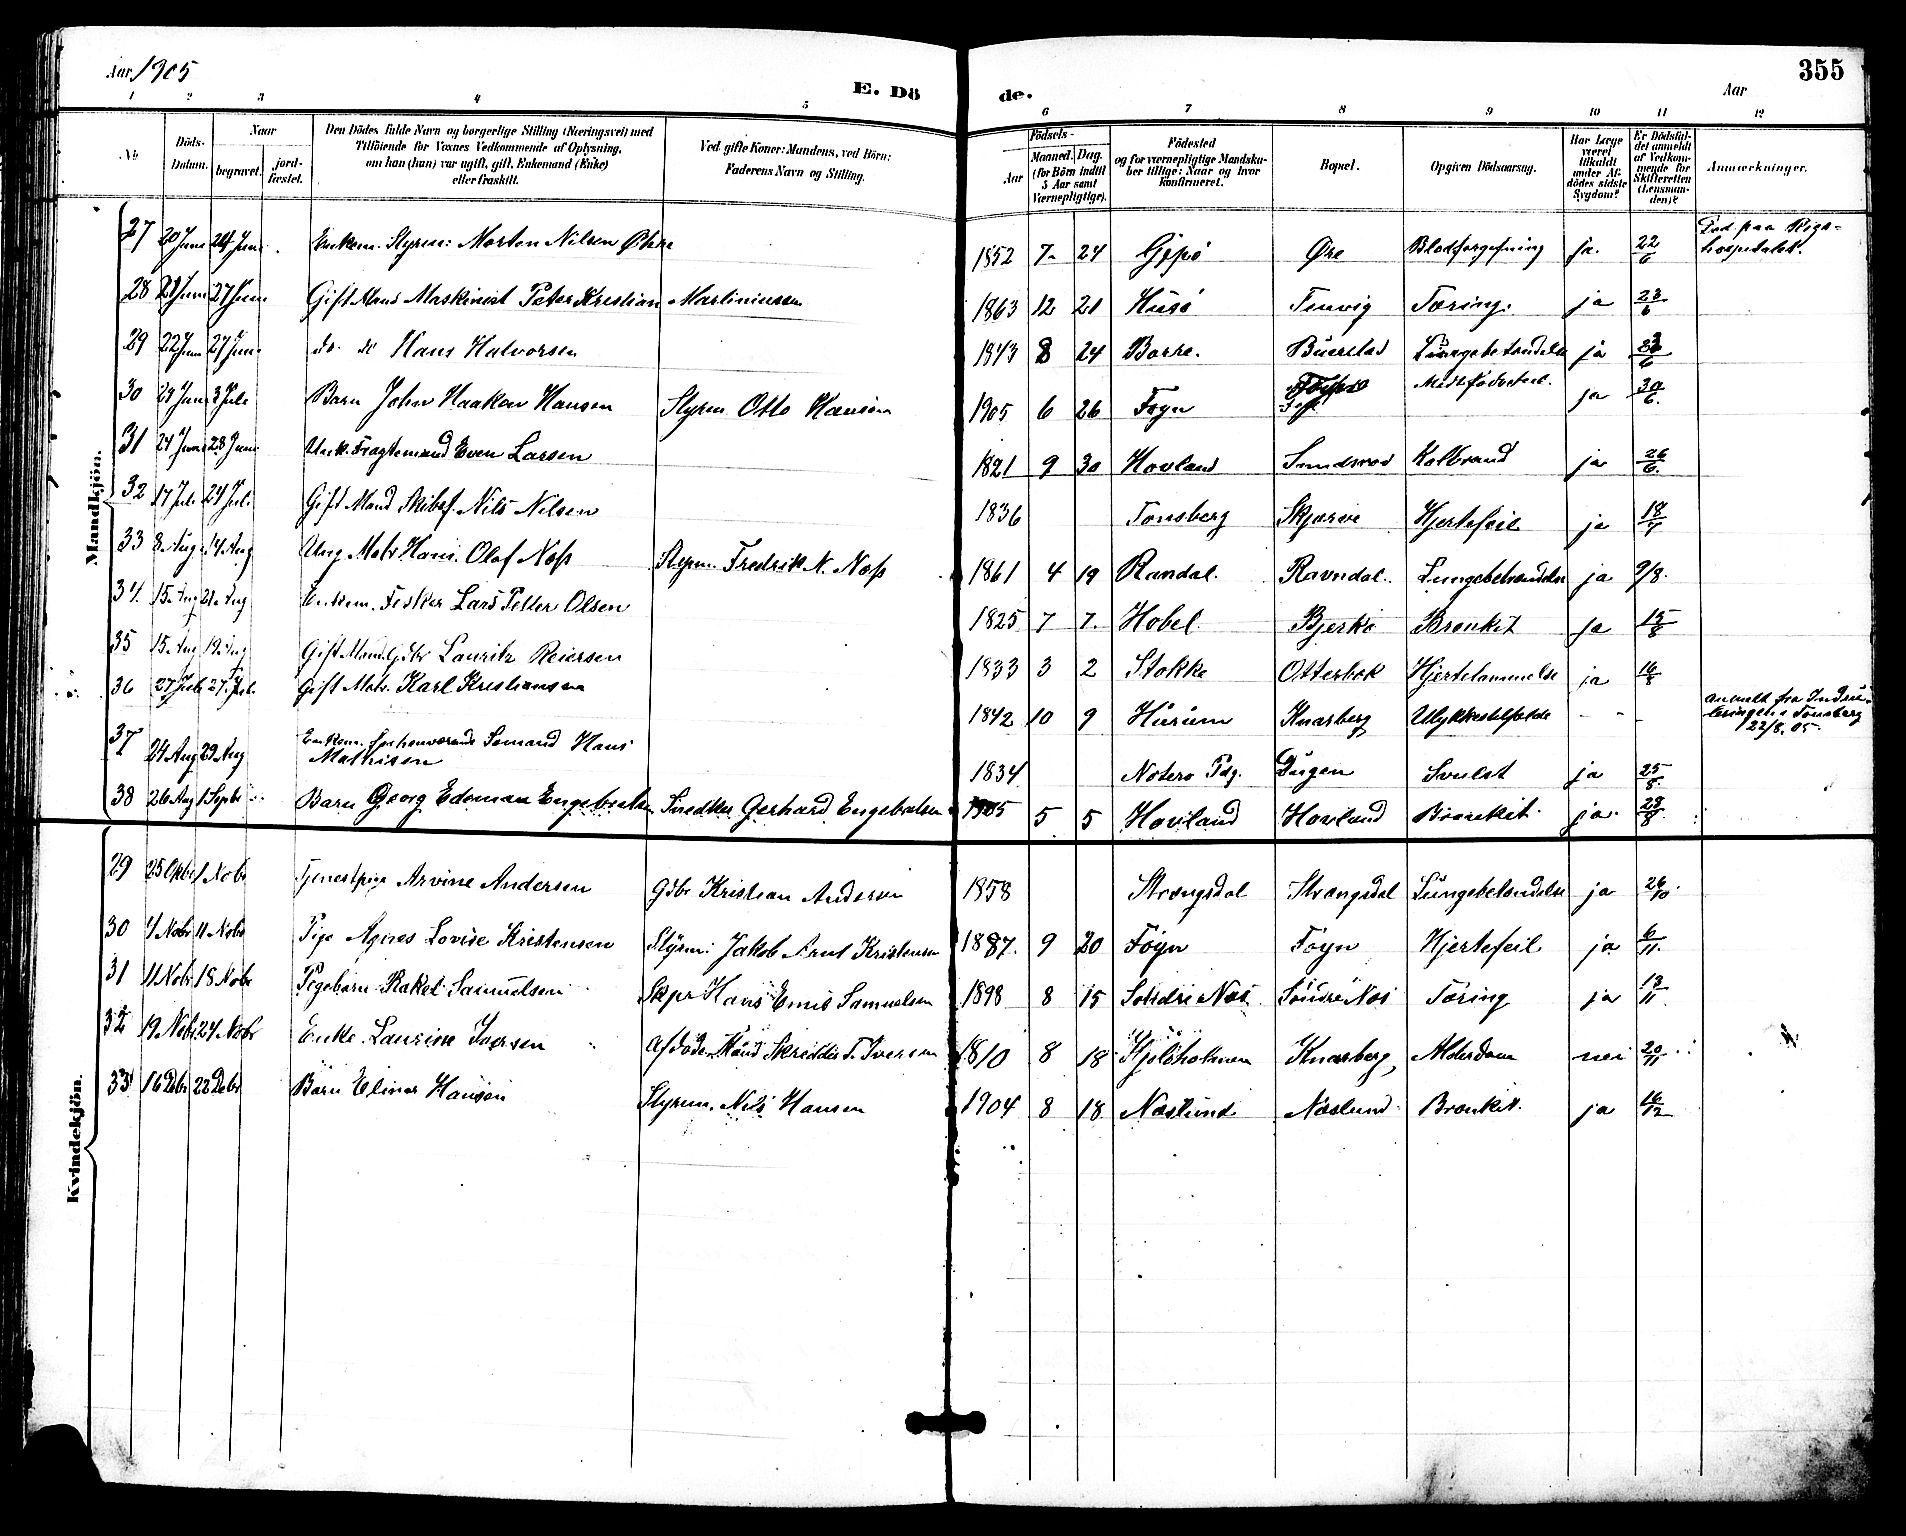 Aar 1905
E. Dö de.
355
Aar
1 2 3 4 5 6 7 8 9 10 11 12
No
Döds-Datum.
Naar begravet. jordfæstet.
Den Dödes fulde Navn og borgerlige Stilling (Næringsvei) med
Tilföiende for Voxnes Vedkommende af Oplysning,
om han (hun) var ugift, gift, Enkemand (Enke)
eller fraskilt.
Ved gifte Koner: Mandens, ved Börn:
Faderens Navn og Stilling.
Födsels-
Aar Maaned. Dag.
(for Börn indtil
5 Aar samt
Værnepligtige).
Födested
og for værnepligtige Mandskaber tillige: Naar og hvor
Konfirmeret.
Bopæl.
Opgiven Dödsaarsag.
Har Læge været tilkaldt under Afdödes sidste Sygdom?
Er Dödsfaldet anmeldt af Vedkommende for Skifteretten (Lensmanden)?
Anmærkninger.
Mandkjön.
27 20 Juni 24 Juni Enkem. Styrm. Morten Nilsen Öhre 1852 7 24 Gipö Øre Blodforgiftning ja. 22/6 Död paa Rigshospitalet.
28 21 Juni 27 Juni Gift Mand Maskinist Peter Kristian Martiniusen 1863 12 21 Husö Tenvig Tæring. ja 23/6
29 22 Juni 27 Juni do. do Hans Halvorsen 1843 8 24 Borre. Buerstad Lungebetændelse ja 23/6
30 29 Juni 3 Juli Barn John Haakon Hansen Styrm Otto Hansen 1905 6 26 Föyn Medfödsfeil. ja 30/6.
31 24 Juni 28 Juni Unk. Fragtemand Even Larsen 1821 9 30 Hovland Sundsrod Kolbrand ja 26/6.
32 17 Juli 24 Juli Gift Mand Skibsf. Nils Nilsen 1836 Tønsberg Skjærve Hjertefeil ja 18/7
33 8 Aug 14 Aug Ung. Matr Hans Olaf Næss Styrm. Fredrik N. Næss 1861 4 19 Ravndal. Ravndal. Lungebetændelse ja 9/8.
34. 15. Aug 21. Aug Enkem. Fisker Lars Petter Olsen 1825 7 7. Hobel Bjerkö Bronkit ja 15/8
35 15. Aug 19. Aug Gift Mand. Gdbr Lauritz Reiersen 1833 3 2 Stokke Otterbæk Hjertelammelse ja 16/8
36 27 Juli 27. Juli. Gift Matr. Karl Kristiansen 1842 10 9 Hurum Knarberg Ulykkestilfælde - - - anmeldt fra Indrulleringen i Tønsberg 22/8. 05.
37 24 Aug 29 Aug Enkem. forhenværende Sømand Hans
Mathisen 1834 Nøterö Pdg. Dugen Svulst ja 25/8.
38 26 Aug 1 Septbr Barn Georg Edeman Engebretsen Snedker Gerhard Engebretsen 1905 5 5 Hovland Hovland Bronkit. ja. 28/8
Kvindekjön.
29 25 Oktbr 1 Nobr Tjenestpige Arvine Andersen Gdbr Kristian Andersen 1858 Strængsdal Strængsdal Lungebetændelse ja 26/10.
30 4 Nobr 11 Nobr Pige Agnes Lovise Kristensen Styrm: Jakob Arnt Kristensen 1887. 9 20 Föyn Föyn Hjertefeil ja 6/11.
31 11 Nobr 18 Nobr Pigebarn Rakel Samuelsen Skpr Hans Emil Samuelsen 1898 8 15 Söndre Næs Söndre Næs Tæring ja 13/11
32 19 Nobr 24 Nobr Enke Laurine Iversen Afdöde Mand Skredder T. Iversen 1810 8 18 Kjøleholmen Knarberg, Alderdom nei 20/11
33 16 Debr 22 Debr Barn Elinor Hansen Styrm. Nils Hansen 1904 8 18 Næslund Næslund Bronkit. ja 16/12